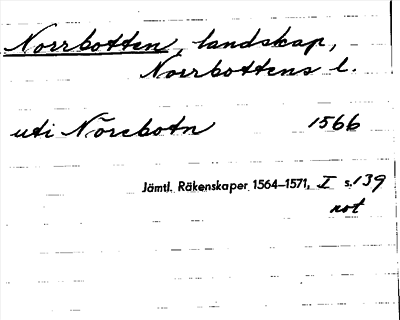 Norrbotten, landskap,
Norrbottens l.
uti Norebotn 1566
Jämtl. Räkenskaper 1564–1571, I s. 139
not